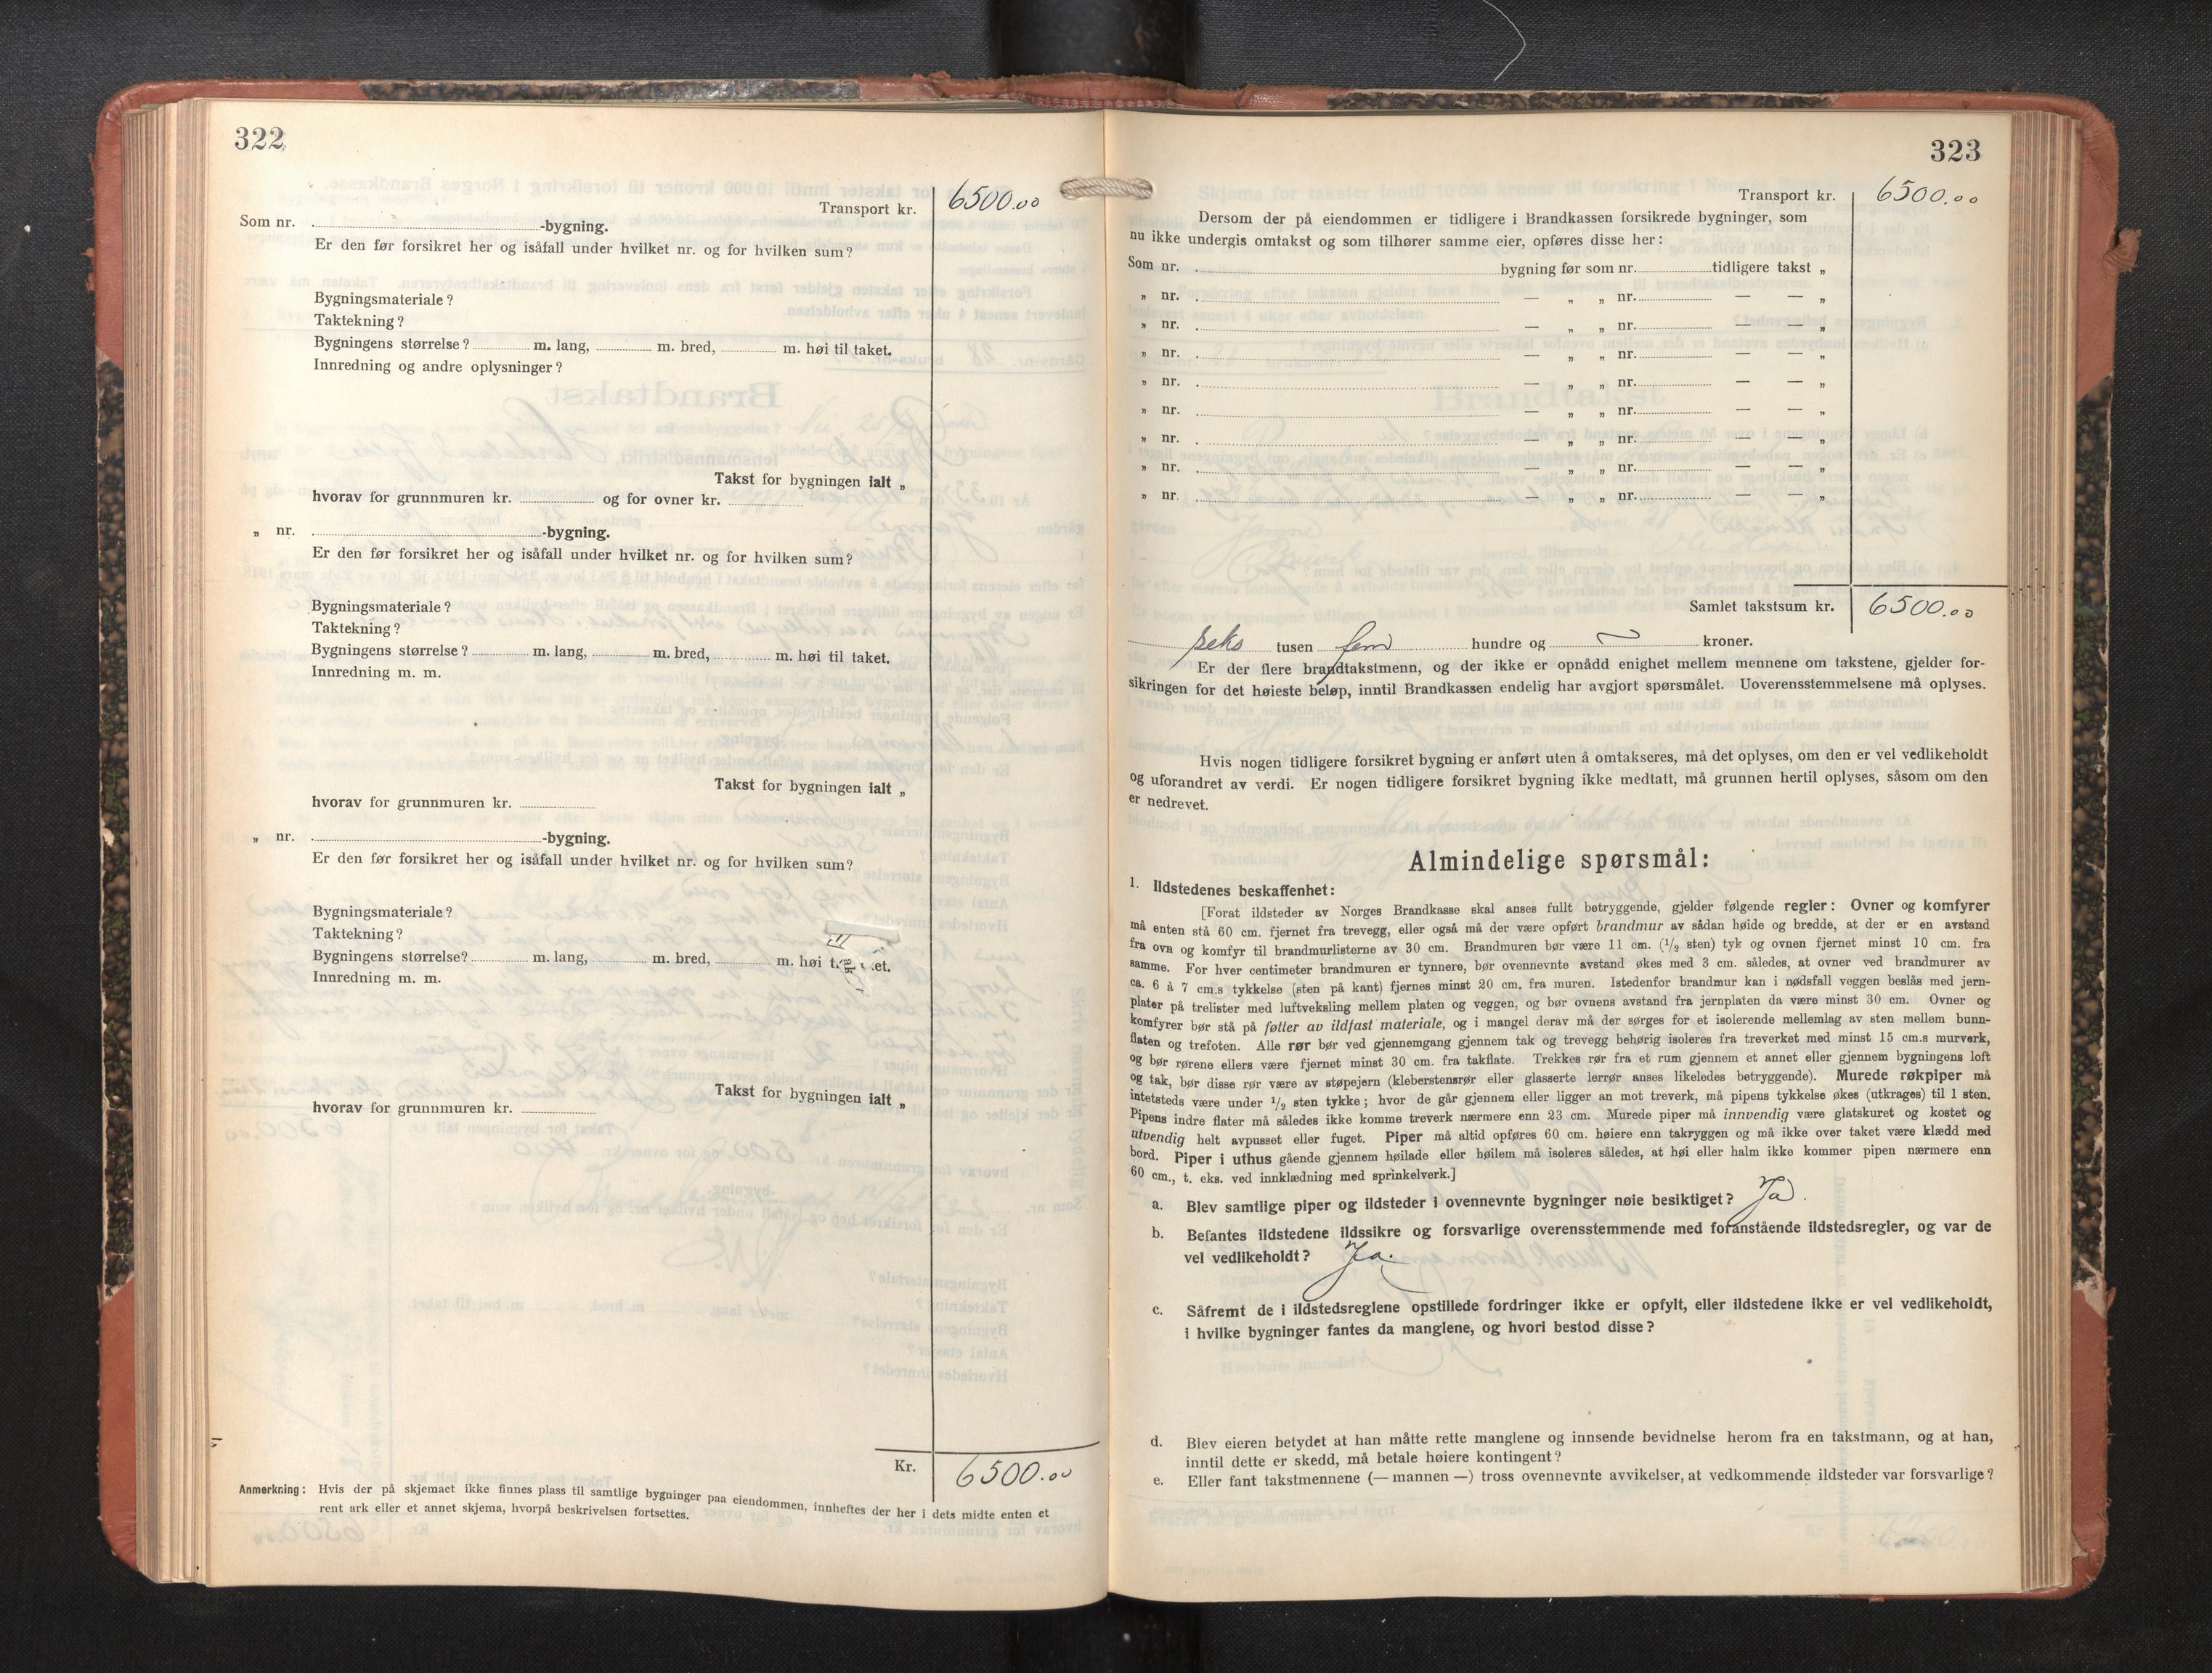 322
Transport kr. 6500.00
Som nr. -bygning.
Er den før forsikret her og isåfall under hvilket nr. og for hvilken sum?
Bygningsmateriale?
Taktekning?
Bygningens størrelse? m. lang, m. bred, m. høi til taket.
Innredning og andre oplysninger?
Takst for bygningen ialt „
hvorav for grunnmuren kr. og for ovner kr.
„ nr. -bygning.
Er den før forsikret her og isåfall under hvilket nr. og for hvilken sum?
Bygningsmateriale?
Taktekning?
Bygningens størrelse? m. lang, m. bred, m. høi til taket.
Innredning m. m.
Takst for bygningen ialt „
hvorav for grunnmuren kr.
„ nr. -bygning.
Er den før forsikret her og isåfall under hvilket nr. og for hvilken sum?
Bygningsmateriale?
Taktekning?
Bygningens størrelse? m. lang, m. bred, m. høi t et.
Innredning m. m.
Takst for bygningen ialt „
hvorav for grunnmuren kr.
Kr. 6500.00
Anmerkning: Hvis der på skjemaet ikke finnes plass til samtlige bygninger paa eiendommen, innheftes der her i dets midte enten et
rent ark eller et annet skjema, hvorpå beskrivelsen fortsettes.
323
Transport kr. 6500.00
Dersom der på eiendommen er tidligere i Brandkassen forsikrede bygninger, som
nu ikke undergis omtakst og som tilhører samme eier, opføres disse her:
Som nr. bygning før som nr. tidligere takst „
„ nr. — „ „ nr. — — „
„ nr. — „ „ nr. — — „
„ nr. — „ „ nr. — — „
„ nr. — „ „ nr. — — „
„ nr. — „ „ nr. — — „
„ nr. — „ „ nr. — — „
„ nr. — „ „ nr. — — „
„ nr. — „ „ nr. — — „
Samlet takstsum kr. 6500.00
seks tusen fem hundre og — kroner.
Er der flere brandtakstmenn, og der ikke er opnådd enighet mellem mennene om takstene, gjelder for-
sikringen for det høieste beløp, inntil Brandkassen endelig har avgjort spørsmålet. Uoverensstemmelsene må oplyses.
Hvis nogen tidligere forsikret bygning er anført uten å omtakseres, må det oplyses, om den er vel vedlikeholdt
og uforandret av verdi. Er nogen tidligere forsikret bygning ikke medtatt, må grunnen hertil oplyses, såsom om den
er nedrevet.
Almindelige spørsmål:
1. Ildstedenes beskaffenhet:
[Forat ildsteder av Norges Brandkasse skal anses fullt betryggende, gjelder følgende regler: Ovner og komfyrer
må enten stå 60 cm. fjernet fra trevegg, eller også må der være opført brandmur av sådan høide og bredde, at der er en avstand
fra ovn og komfyr til brandmurlisterne av 30 cm. Brandmuren bør være 11 cm. (1/2 sten) tyk og ovnen fjernet minst 10 cm. fra
samme. For hver centimeter brandmuren er tynnere, bør ovennevnte avstand økes med 3 cm. således, at ovner ved brandmurer av
ca. 6 à 7 cm.s tykkelse (sten på kant) fjernes minst 20 cm. fra muren. Istedenfor brandmur kan i nødsfall veggen beslås med jern-
plater på trelister med luftveksling mellem platen og veggen, og bør ovnens avstand fra jernplaten da være minst 30 cm. Ovner og
komfyrer bør stå på føtter av ildfast materiale, og i mangel derav må der sørges for et isolerende mellemlag av sten mellem bunn-
flaten og trefoten. Alle rør bør ved gjennemgang gjennem tak og trevegg behørig isoleres fra treverket med minst 15 cm.s murverk,
og bør rørene ellers være fjernet minst 30 cm. fra takflate. Trekkes rør fra et rum gjennem et annet eller gjennem bygningens loft
og tak, bør disse rør være av støpejern (kleberstensrør eller glasserte lerrør anses likeledes betryggende). Murede røkpiper må
intetsteds være under 1/2 sten tykke; hvor de går gjennem eller ligger an mot treverk, må pipens tykkelse økes (utkrages) til 1 sten.
Pipens indre flater må således ikke komme treverk nærmere enn 23 cm. Murede piper må innvendig være glatskuret og kostet og
utvendig helt avpusset eller fuget. Piper må altid opføres 60 cm. høiere enn takryggen og må ikke over taket være klædd med
bord. Piper i uthus gående gjennem høilade eller høilem må isoleres således, at høi eller halm ikke kommer pipen nærmere enn
60 cm., t. eks. ved innklædning med sprinkelverk.]
a. Blev samtlige piper og ildsteder i ovennevnte bygninger nøie besiktiget? Ja.
b. Befantes ildstedene ildssikre og forsvarlige overensstemmende med foranstående ildstedsregler, og var de
vel vedlikeholdt? Ja.
c. Såfremt de i ildstedsreglene opstillede fordringer ikke er opfylt, eller ildstedene ikke er vel vedlikeholdt,
i hvilke bygninger fantes da manglene, og hvori bestod disse?
d. Blev eieren betydet at han måtte rette manglene og innsende bevidnelse herom fra en takstmann, og at han,
inntil dette er skedd, må betale høiere kontingent?
e. Eller fant takstmennene (— mannen —) tross ovennevnte avvikelser, at vedkommende ildsteder var forsvarlige?